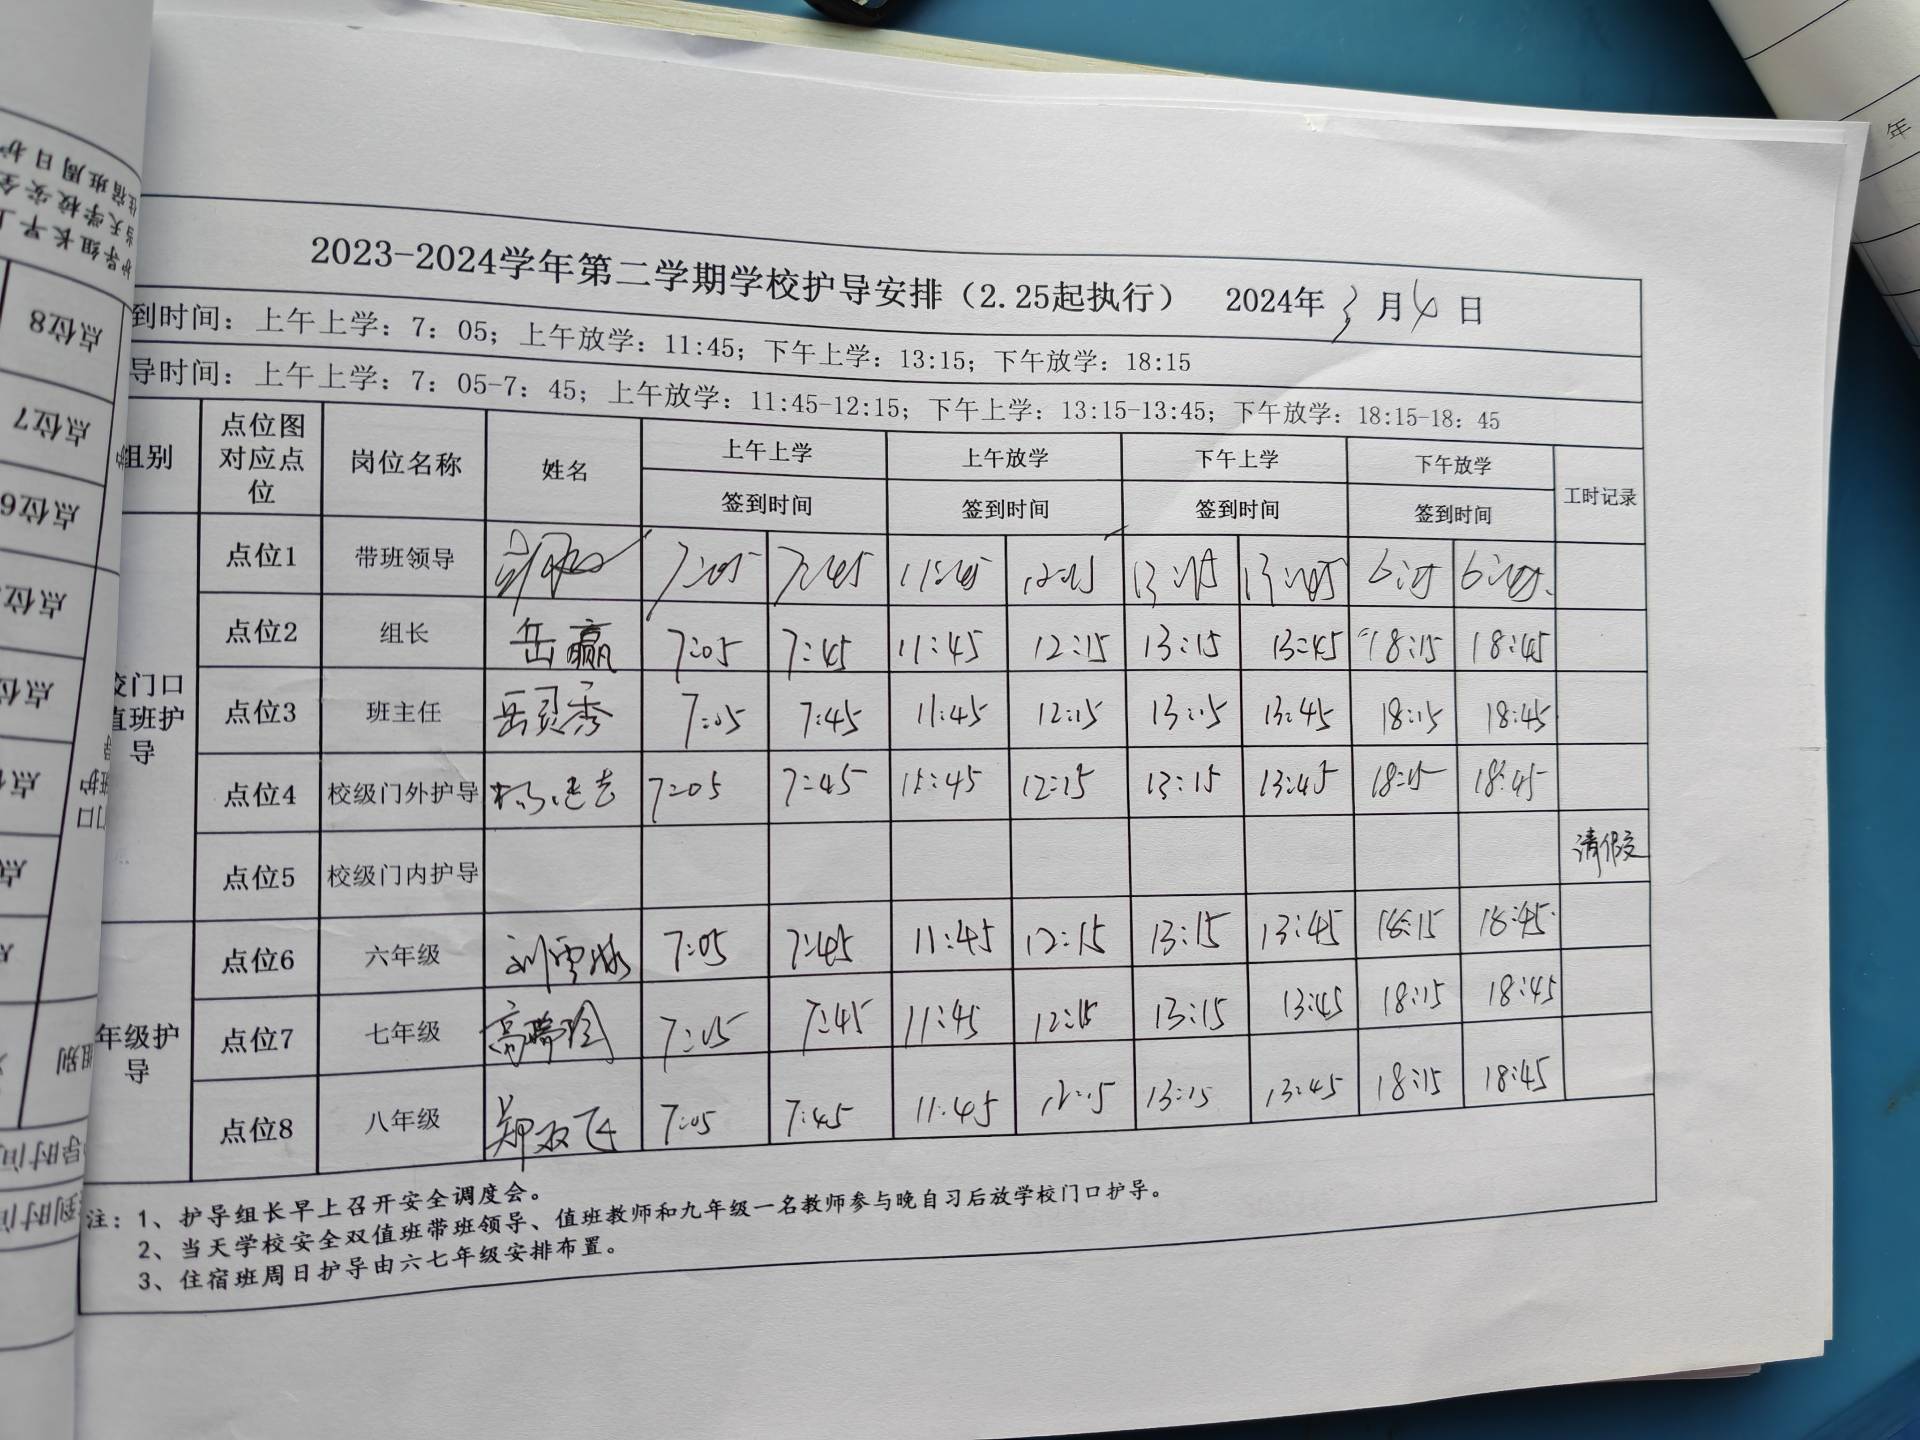 2023-2024学年第二学期学校护导安排（2.25起执行） 2024年3月4日
到时间：上午上学：7：05；上午放学：11:45；下午上学：13:15；下午放学：18:15
导时间：上午上学：7：05-7：45；上午放学：11:45-12:15；下午上学：13:15-13:45；下午放学：18:15-18：45
组别 点位图对应点位 岗位名称 姓名 上午上学 上午放学 下午上学 下午放学 工时记录
签到时间 签到时间 签到时间 签到时间
校门口值班护导
点位1 带班领导 7:05 7:45 11:45 12:15 13:15 13:45 6:15 6:45
点位2 组长 岳赢 7:05 7:45 11:45 12:15 13:15 13:45 18:15 18:45
点位3 班主任 岳灵秀 7:05 7:45 11:45 12:15 13:15 13:45 18:15 18:45
点位4 校级门外护导 7:05 7:45 11:45 12:15 13:15 13:45 18:15 18:45
点位5 校级门内护导 请假
年级护导
点位6 六年级 7:05 7:45 11:45 12:15 13:15 13:45 18:15 18:45
点位7 七年级 7:05 7:45 11:45 12:15 13:15 13:45 18:15 18:45
点位8 八年级 郑双飞 7:05 7:45 11:45 12:15 13:15 13:45 18:15 18:45
注：1、护导组长早上召开安全调度会。
2、当天学校安全双值班带班领导、值班教师和九年级一名教师参与晚自习后放学校门口护导。
3、住宿班周日护导由六七年级安排布置。